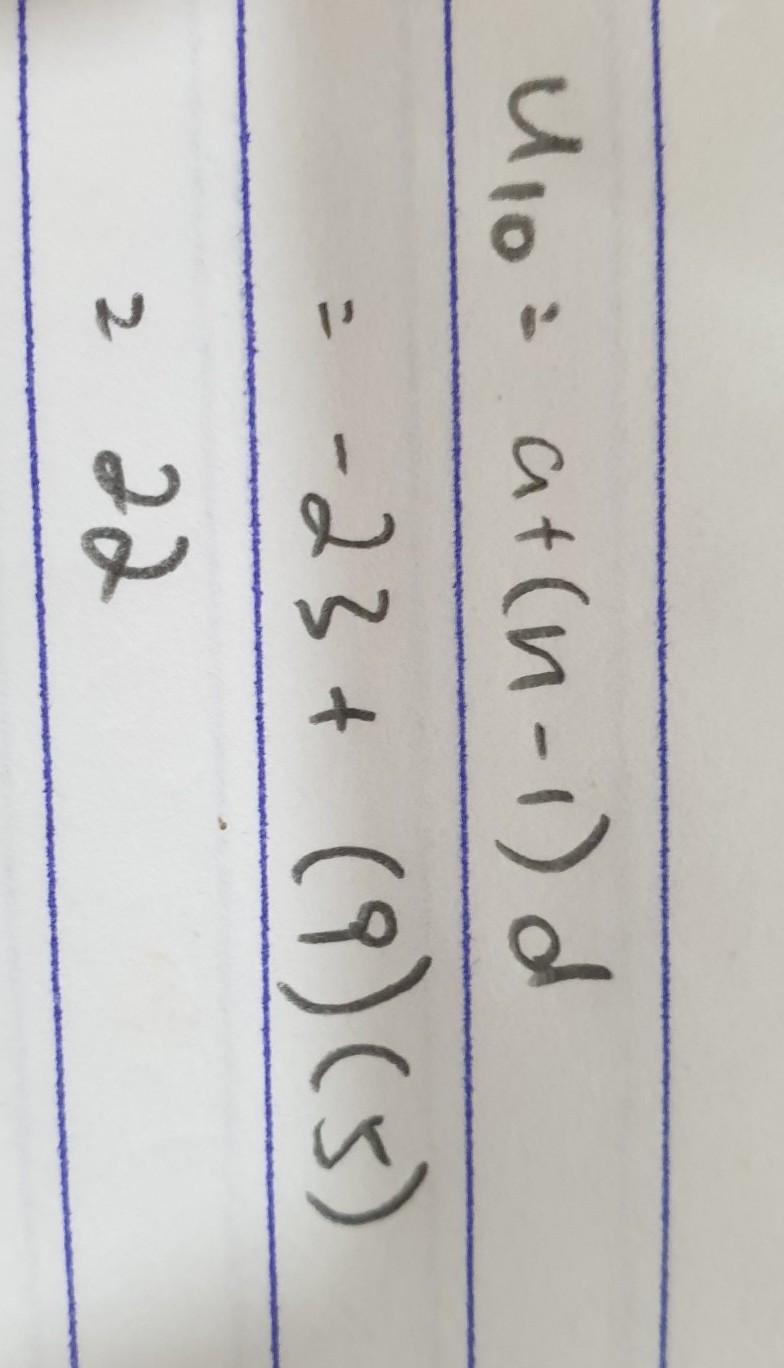 u₁₀ = a+(n-1)d
= -23 + (9)(5)
= 22